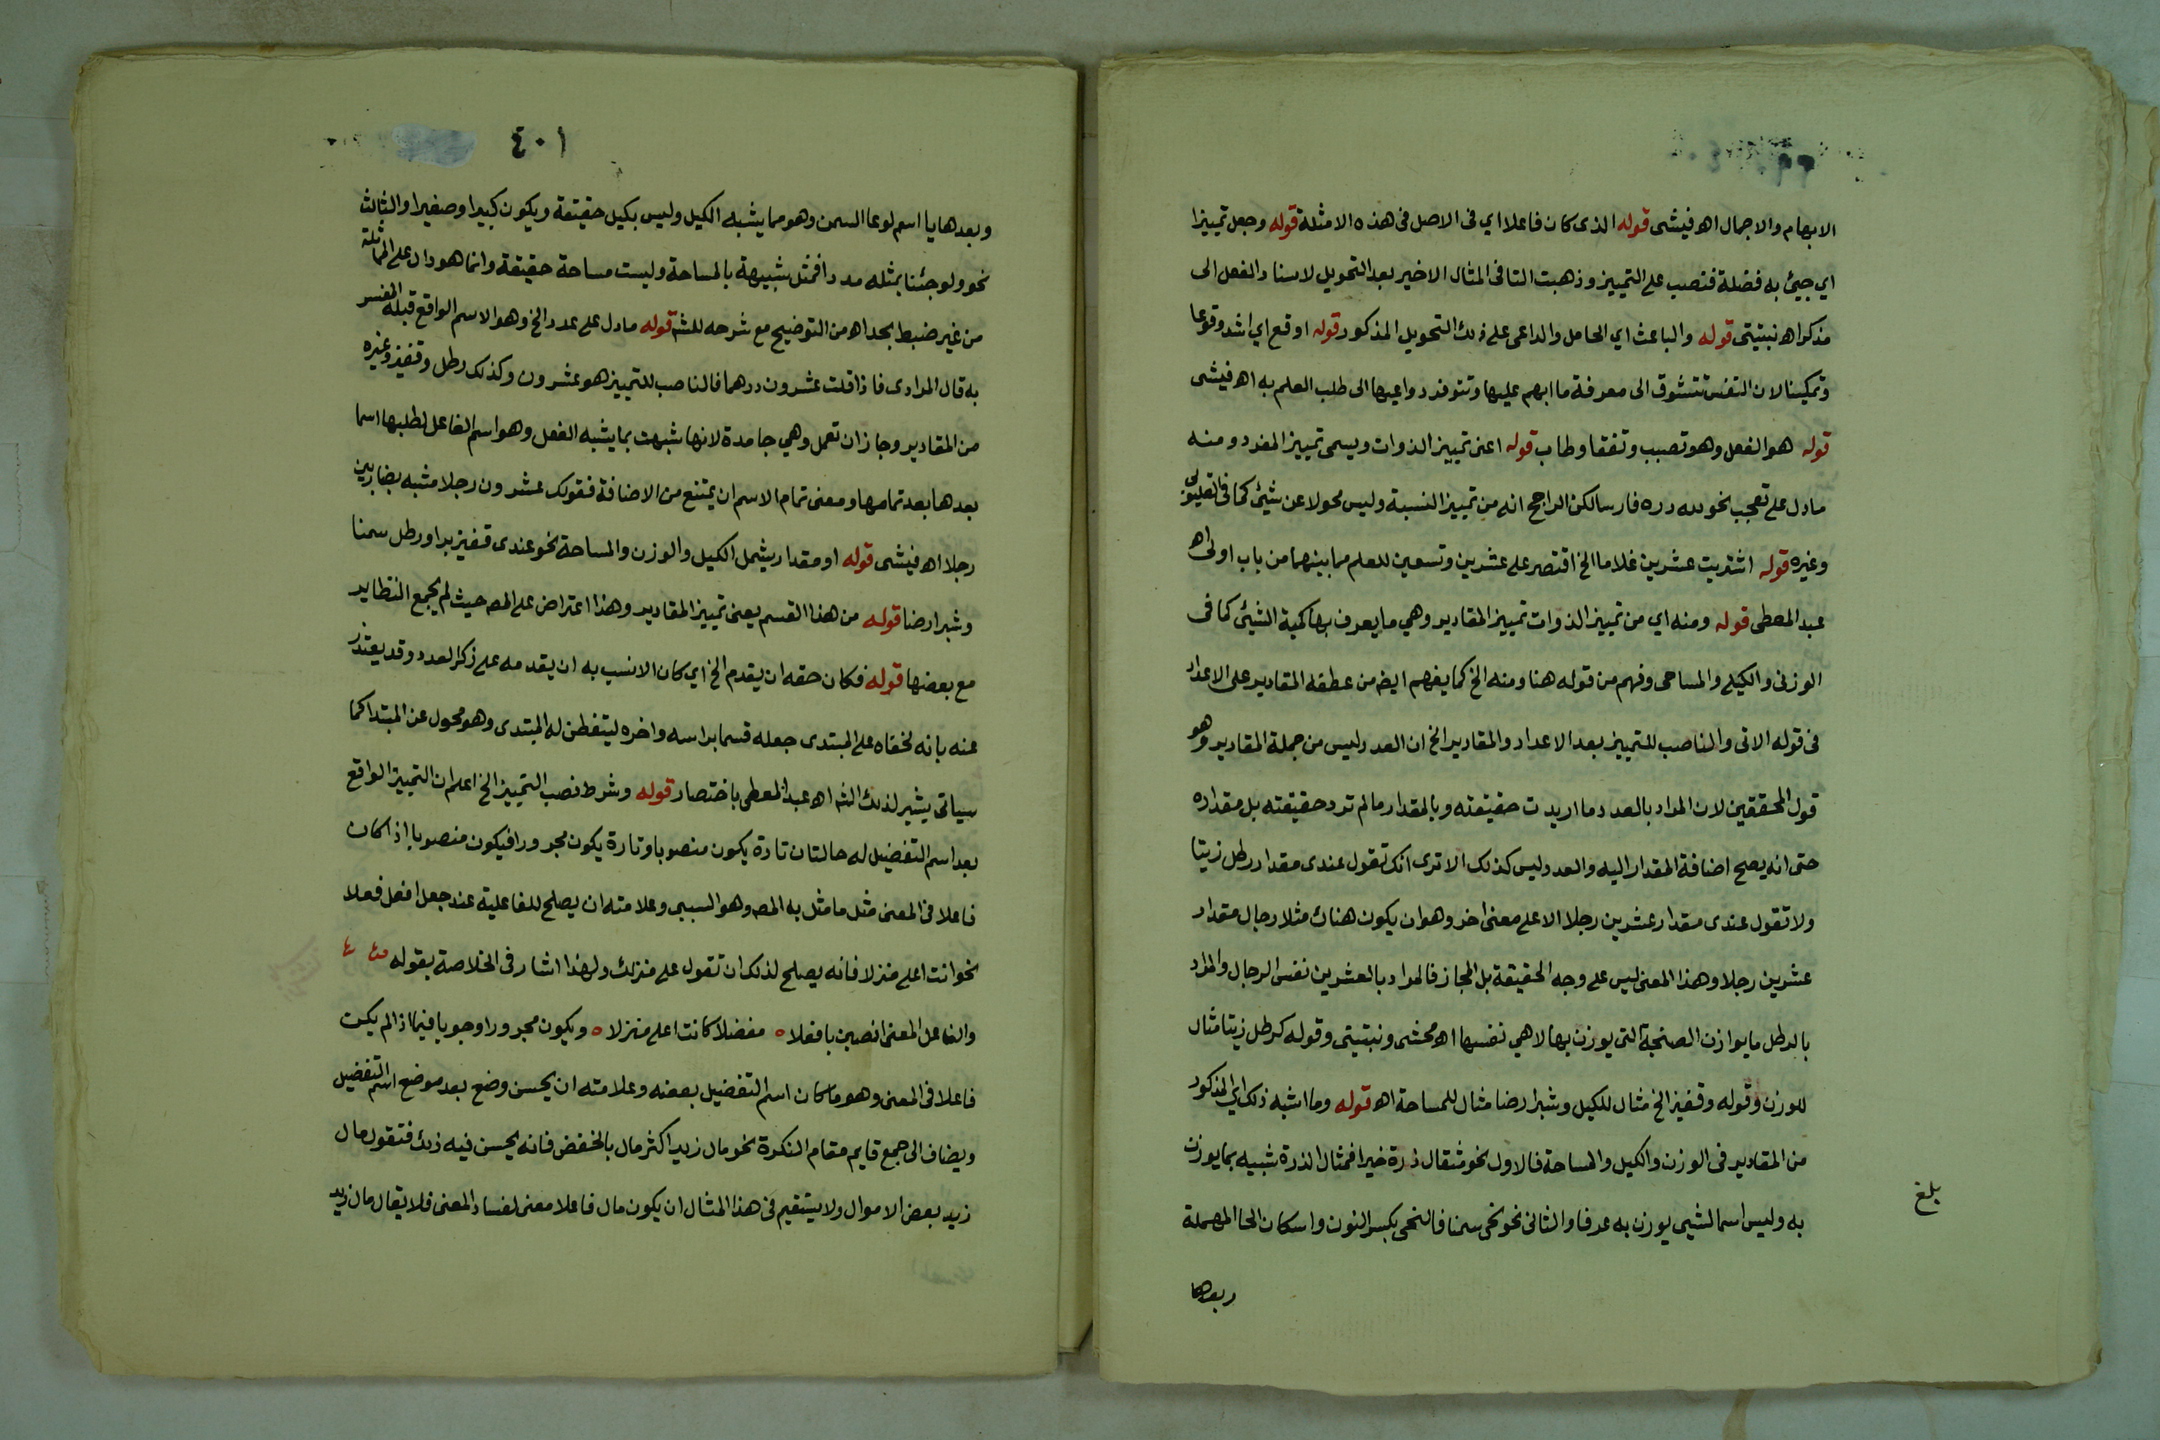 الابهام والاجمال اه فيشى قوله الذى كان فاعلا اي فى الاصل فى هذه الامثلة قوله وجعل تمييزا
اي جيئ به فضلة فنصب على التمييز وذهبت التا فى المثال الاخير بعد التحويل لاسناد الفعل الى
مذكر اه نبتيتى قوله والباعث اي الحامل والداعى على ذلك التحويل المذكور قوله اوقع اي اشد وقوعا
وتمكينا لان النفس تتشوق الى معرفة ما ابهم عليها وتتوفر دواعيها الى طلب العلم به اه فيشى
قوله هو الفعل وهو تصبب وتفقا وطاب قوله اعنى تمييز الذوات ويسمى تمييز المفرد ومنه
مادل على تعجب نحو لله دره فارسا لكن الراجح انه من تمييز النسبة وليس محولا عن شيئ كما فى
وغيره قوله اشتريت عشرين غلاما الخ اقتصر على عشرين وتسعين للعلم مما بينهما من باب اولى اه
عبد المعطى قوله ومنه اي من تمييز الذوات تمييز المقادير وهي ما يعرف بها كمية الشيئ كما فى
الوزنى والكيلى والمساحى وفهم من قوله هنا ومنه الخ كما يفهم ايض من عطفه المقادير على الاعداد
فى قوله الاتى والناصب للتمييز بعد الاعداد والمقادير الخ ان العدد ليس من جملة المقادير وهو
قول المحققين لان المراد بالعدد ما اريدت حقيقته وبالمقدار مالم ترد حقيقته بل مقداره
حتى انه يصح اضافة المقدار اليه والعدد ليس كذلك الا ترى انك تقول عندى مقدار رطل زيتا
ولا تقول عندى مقدار عشرين رجلا الا على معنى اخر وهو ان يكون هناك مثلا رجال مقدار
عشرين رجلا وهذا المعنى ليس على وجه الحقيقة بل المجاز فالمراد بالعشرين نفس الرجال والمراد
بالرطل ما يوازن الصنجة التى يوزن بها لا هي نفسها اه محشى ونبتيتى وقوله كرطل زيتا مثال
للوزن وقوله وقفيز الخ مثال للكيل وشبر ارضا مثال للمساحة اه قوله وما اشبه ذلك اي المذكور
من المقادير فى الوزن والكيل والمساحة فالاول نحو مثقال ذرة خيرا فمثال الذرة شبيه بما يوزن
به وليس اسما لشيى يوزن به عرفا والثانى نحو نحى سمنا فالنحى بكسر النون واسكان الحا المهملة
بلغ
وبعدها
٤٠١
وبعدها يا اسم لوعا السمن وهو مما يشبه الكيل وليس بكيل حقيقة ويكون كبيرا وصغيرا والثالث
نحو ولو جئنا بمثله مددا فمثل شبيهة بالمساحة وليست مساحة حقيقة وانما هو دال على المماثلة
من غير ضبط بحد اه من التوضيح مع شرحه للش قوله مادل على عدد الخ وهو الاسم الواقع قبله المفسر
به قال المرادى فاذا قلت عشرون درهما فالناصب للتمييز هو عشرون وكذلك رطل وقفيز وغيره
من المقادير وجاز ان تعمل وهي جامدة لانها شبهت بما يشبه الفعل وهو اسم الفاعل لطلبها اسما
بعدها بعد تمامها ومعنى تمام الاسم ان يمتنع من الاضافة فقولك عشرون رجلا مشبه بضاربين
رجلا اه فيشى قوله او مقدار يشمل الكيل والوزن والمساحة نحو عندى قفيز برا ورطل سمنا
وشبر ارضا قوله من هذا القسم يعنى تمييز المقادير وهذا اعتراض على المص حيث لم يجمع النظاير
مع بعضها قوله فكان حقه ان يقدم الخ اي كان الانسب به ان يقدمه على ذكر العدد وقد يعتذر
عنه بانه لخفاه على المبتدى جعله قسما براسه واخره ليتفطن له المبتدى وهو محول عن المبتدا كما
سياتى يشير لذلك الش اه عبد المعطى باختصار قوله وشرط نصب التمييز الخ اعلم ان التمييز الواقع
بعد اسم التفضيل له حالتان تارة يكون منصوبا وتارة يكون مجرورا فيكون منصوبا اذا كان
فاعلا فى المعنى مثل ما مثل به المص وهو السببى وعلامته ان يصلح للفاعلية عند جعل افعل فعلا
نحو انت اعلى منزلا فانه يصلح لذلك ان تقول على منزلك ولهذا اشار فى الخلاصة بقوله
والفاعل المعنى انصبن بافعلا ه مفضلا كانت اعلى منزلا ه ويكون مجرورا وجوبا فيما اذا لم يكن
فاعلا فى المعنى وهو ما كان اسم التفضيل بعضه وعلامته ان يحسن وضع بعد موضع اسم التفضيل
ويضاف الى جمع قايم مقام النكرة نحو مال زيد اكثر مال بالخفض فانه يحسن فيه ذلك فتقول مال
زيد بعض الاموال ولا يستقيم فى هذا المثال ان يكون مال فاعلا معنى لفساد المعنى فلا يقال مال زيد